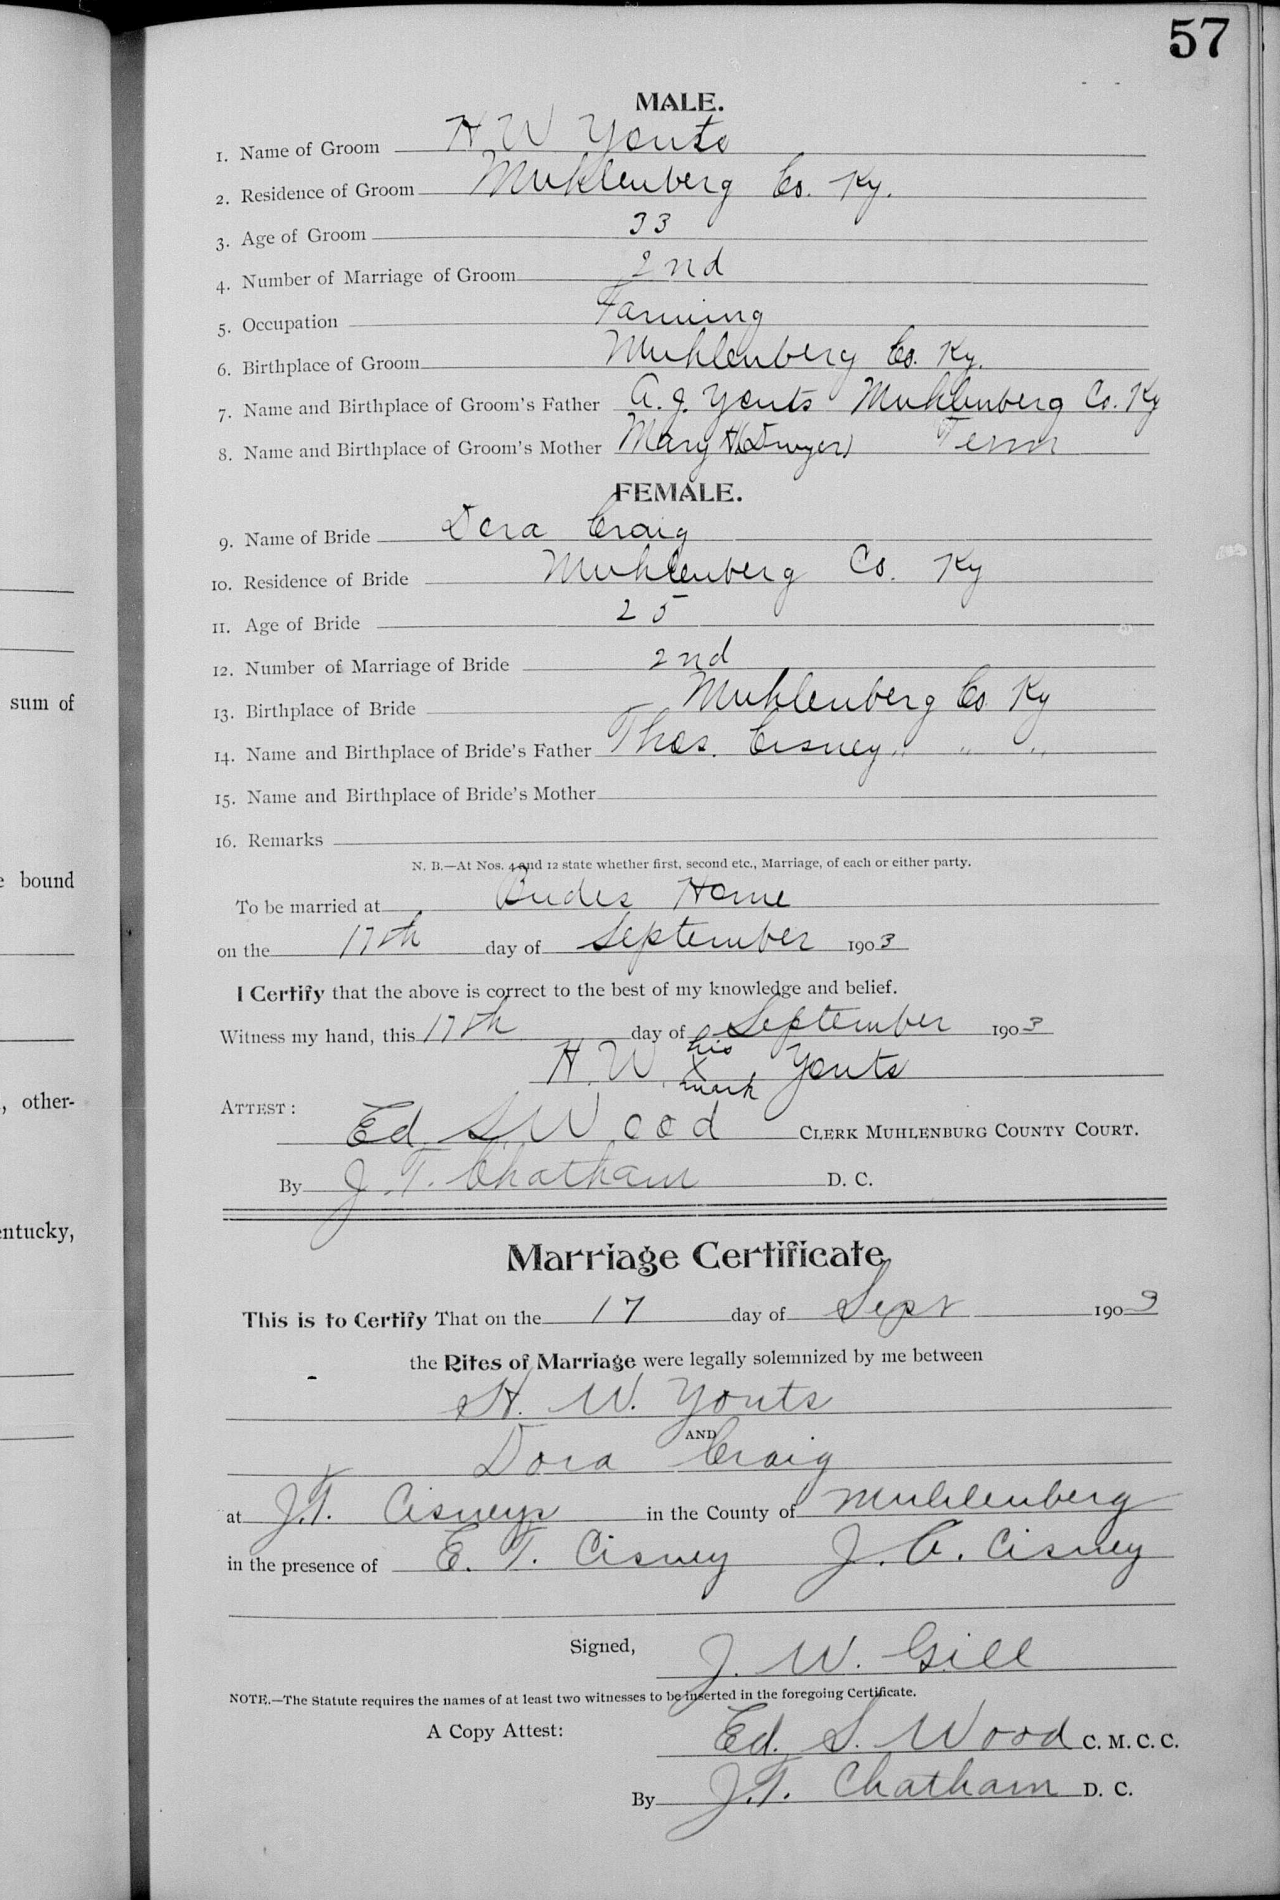 57
MALE.
1. Name of Groom H W Yonts
2. Residence of Groom Muhlenberg Co. Ky.
3. Age of Groom 33
4. Number of Marriage of Groom 2nd
5. Occupation Farming
6. Birthplace of Groom Muhlenberg Co. Ky.
7. Name and Birthplace of Groom's Father A. J. Yonts Muhlenberg Co. Ky
8. Name and Birthplace of Groom's Mother Mary (Dwyer) Tenn
FEMALE.
9. Name of Bride Dora Craig
10. Residence of Bride Muhlenberg Co. Ky
11. Age of Bride 25
12. Number of Marriage of Bride 2nd
13. Birthplace of Bride Muhlenberg Co. Ky
14. Name and Birthplace of Bride's Father Thos. Cisney " " "
15. Name and Birthplace of Bride's Mother
16. Remarks
N. B.—At Nos. 4 and 12 state whether first, second etc., Marriage, of each or either party.
To be married at Brides Home
on the 17th day of September 1903
I Certify that the above is correct to the best of my knowledge and belief.
Witness my hand, this 17th day of September 1903
his
H. W. X Yonts
mark
ATTEST:
Ed. S. Wood CLERK MUHLENBURG COUNTY COURT.
By J. T. Chatham D. C.
Marriage Certificate
This is to Certify That on the 17 day of Sept 1903
the Rites of Marriage were legally solemnized by me between
H. W. Yonts
AND
Dora Craig
at J. T. Cisneys in the County of Muhlenberg
in the presence of E. T. Cisney J. A. Cisney
Signed, J. W. Gill
NOTE.—The Statute requires the names of at least two witnesses to be inserted in the foregoing Certificate.
A Copy Attest: Ed. S. Wood C. M. C. C.
By J. T. Chatham D. C.
sum of
bound
, other-
entucky,